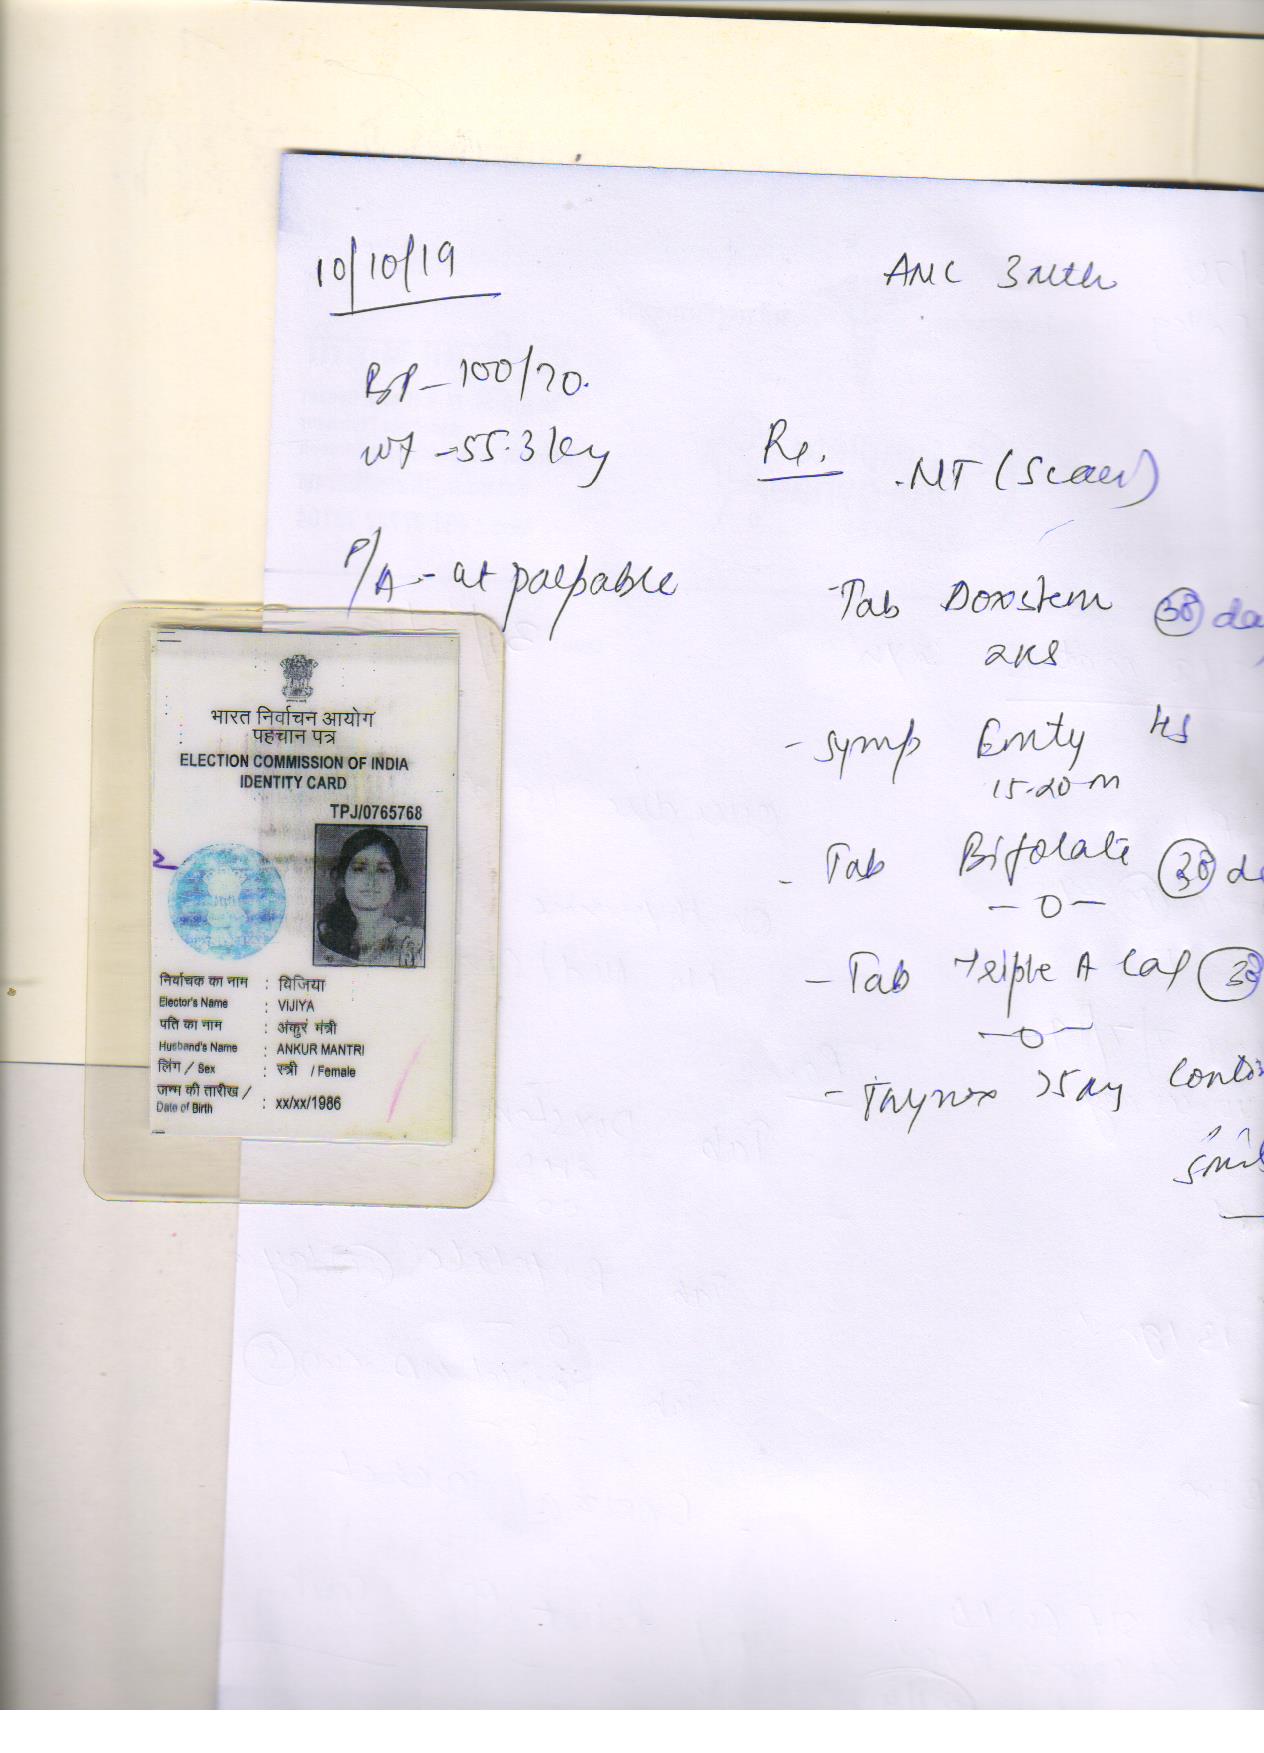 10/10/19
ANC 3 Mth
BP - 100/70.
Wt - 55.3 kg
Rx.
NT (Scan)
P/A - ut palpable
- Tab Doxstem 30
- Syrup Emty HS
15-20 m
- Tab Bifolate 30
— 0 —
- Tab Triple A Cal 30
— 0 —
- Thyrox 75 mg
भारत निर्वाचन आयोग
पहचान पत्र
ELECTION COMMISSION OF INDIA
IDENTITY CARD
TPJ/0765768
निर्वाचक का नाम : विजिया
Elector's Name : VIJIYA
पति का नाम : अंकुर मंत्री
Husband's Name : ANKUR MANTRI
लिंग / Sex : स्त्री / Female
जन्म की तारीख /
Date of Birth : xx/xx/1986